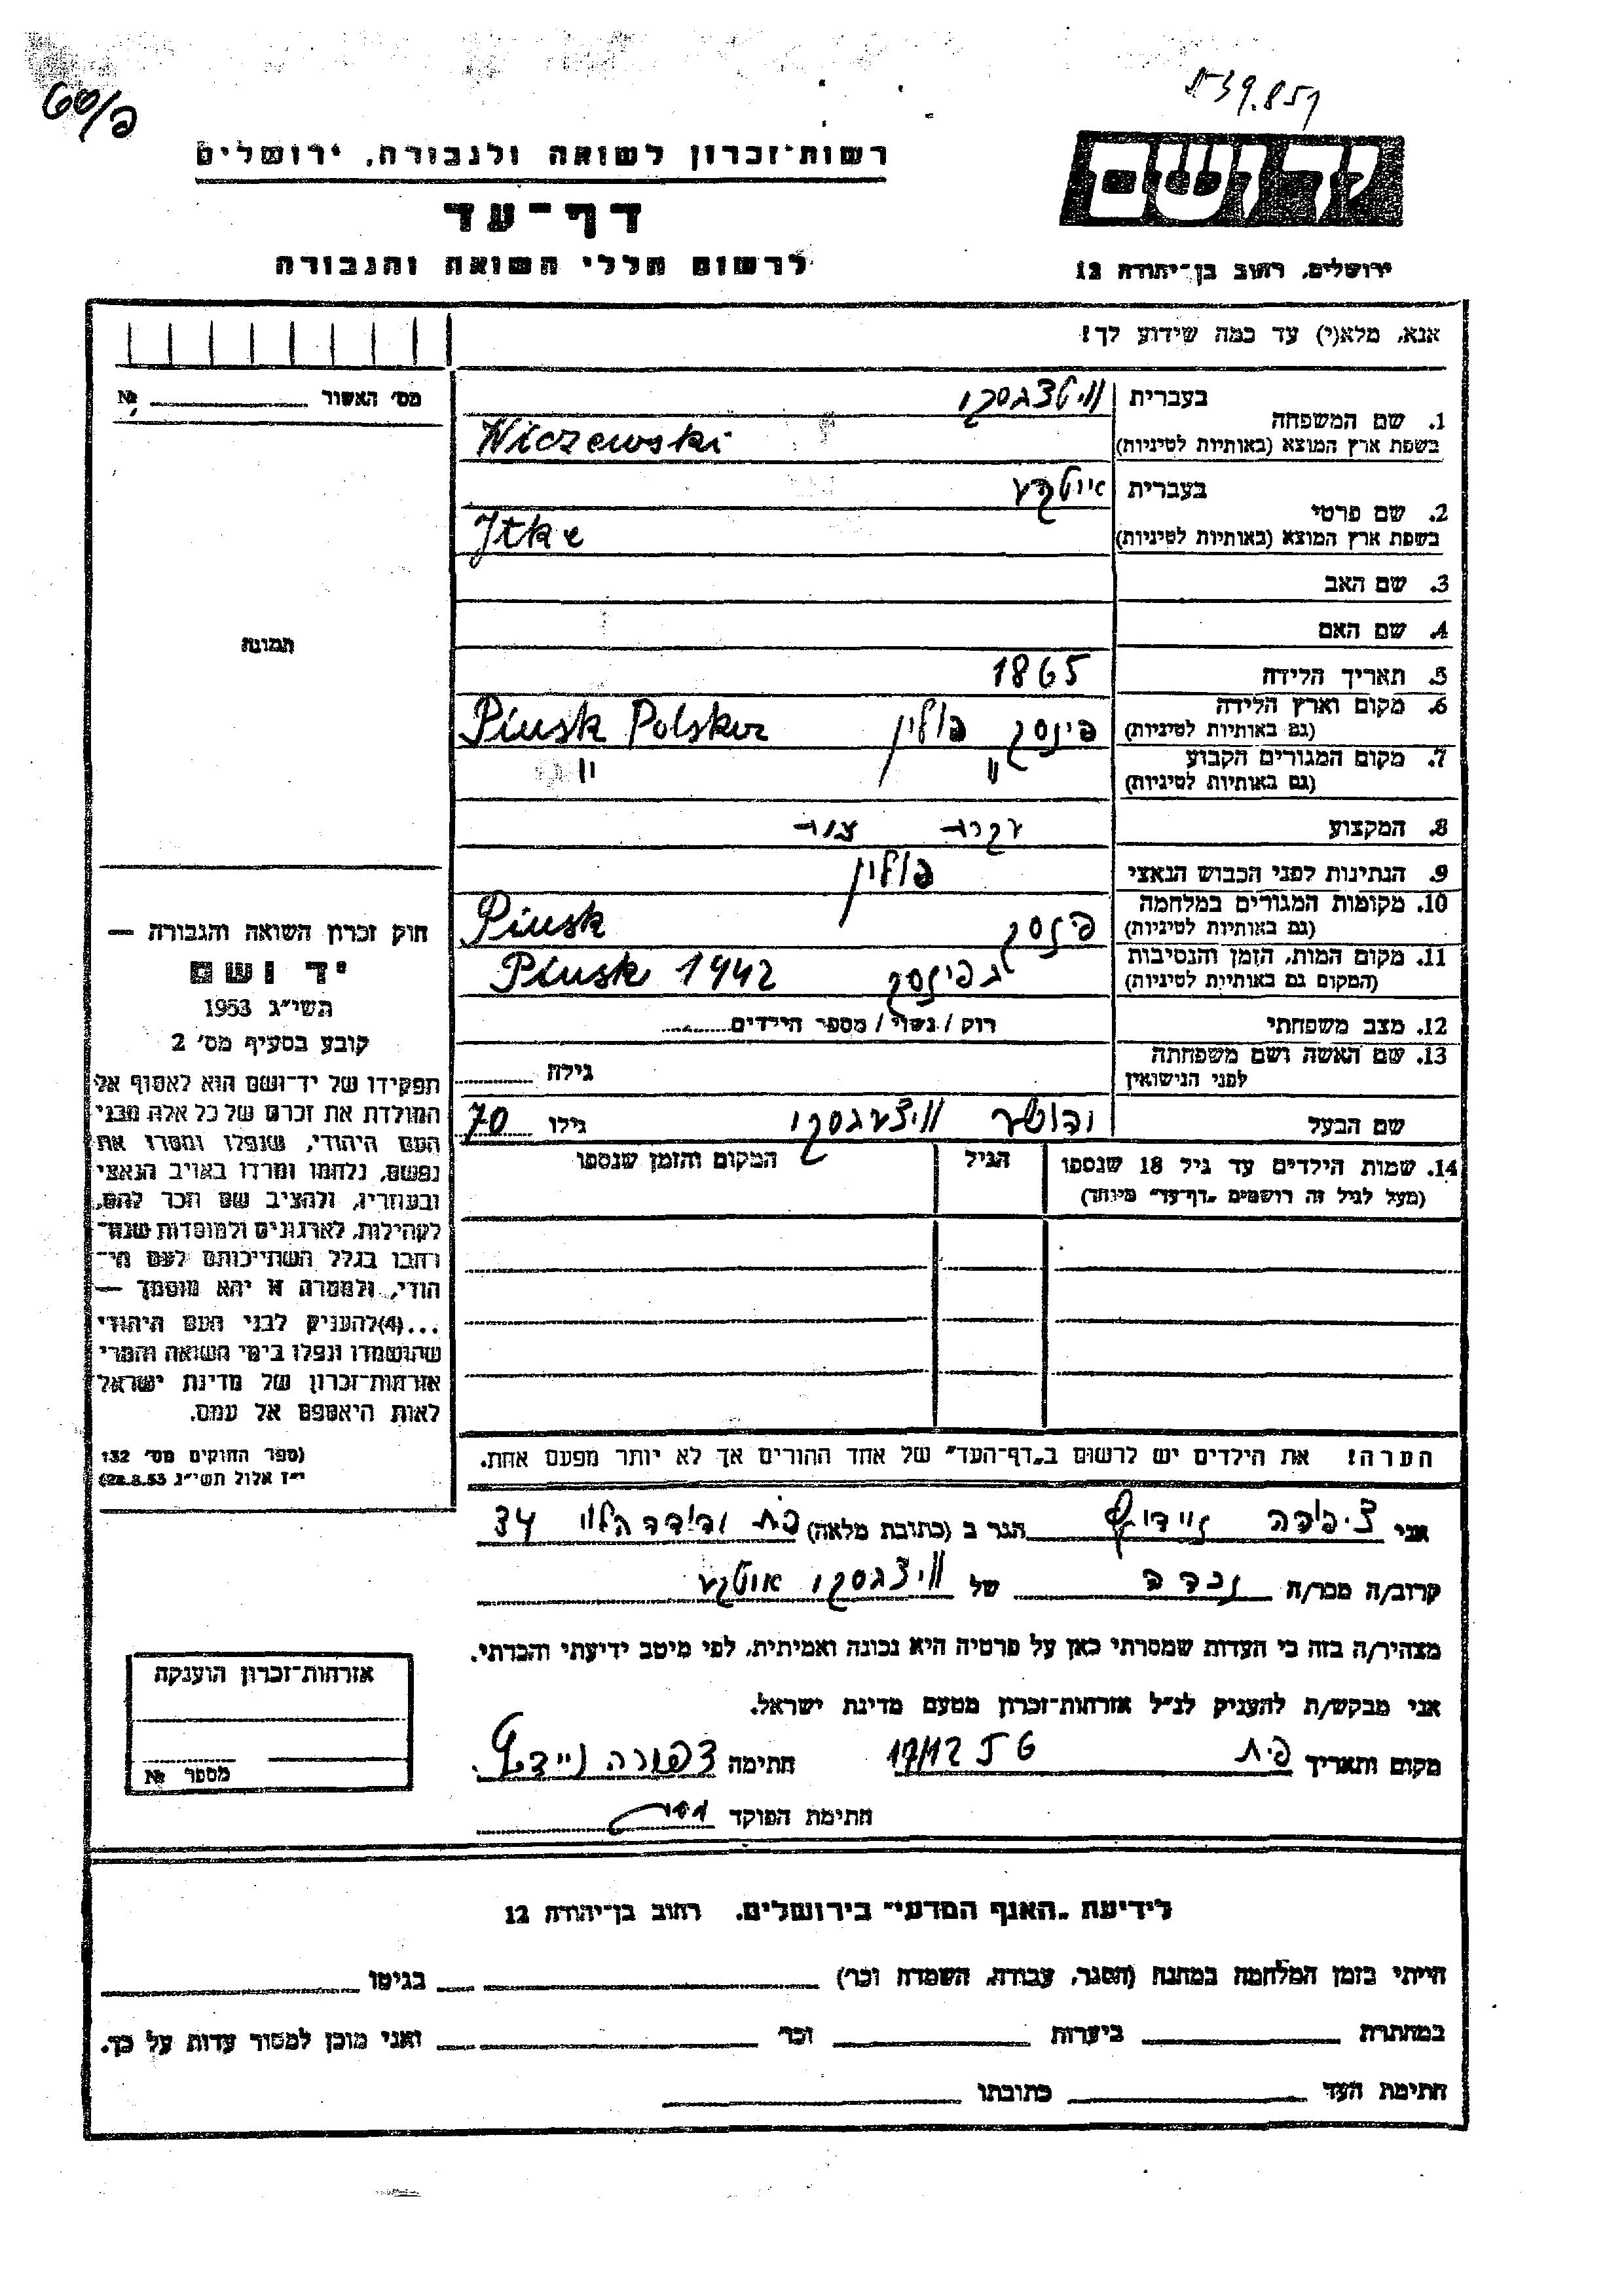 539.851
60/פ
יד ושם
ירושלים, רחוב בן־יהודה 12
רשות־זכרון לשואה ולגבורה, ירושלים
דף־עד
לרשום חללי השואה והגבורה
אנא, מלא(י) עד כמה שידוע לך!
מס׳ האשור № 
תמונה
1. שם המשפחה בעברית
בשפת ארץ המוצא (באותיות לטיניות) Wiczewski
2. שם פרטי בעברית איטקע
בשפת ארץ המוצא (באותיות לטיניות) Jtke
3. שם האב
4. שם האם
5. תאריך הלידה 1865
6. מקום וארץ הלידה (גם באותיות לטיניות) פינסק פולין Pinsk Polska
7. מקום המגורים הקבוע (גם באותיות לטיניות) " "
8. המקצוע עקרת
9. הנתינות לפני הכבוש הנאצי פולין
10. מקומות המגורים במלחמה (גם באותיות לטיניות) פינסק Pinsk
11. מקום המות, הזמן והנסיבות (המקום גם באותיות לטיניות) בפינסק Pinsk 1942
12. מצב משפחתי רוק / נשוי / מספר הילדים
13. שם האשה ושם משפחתה לפני הנישואין גילה
שם הבעל גילו 70
14. שמות הילדים עד גיל 18 שנספו
(מעל לגיל זה רושמים „דף־עד” מיוחד)
הגיל
המקום והזמן שנספו
הערה! את הילדים יש לרשום ב„דף־העד” של אחד ההורים אך לא יותר מפעם אחת.
חוק זכרון השואה והגבורה —
יד ושם
תשי״ג 1953
קובע בסעיף מס׳ 2
תפקידו של יד־ושם הוא לאסוף אל
המולדת את זכרם של כל אלה מבני
העם היהודי, שנפלו ומסרו את
נפשם, נלחמו ומרדו באויב הנאצי
ובעוזריו, ולהציב שם וזכר להם,
לקהילות, לארגונים ולמוסדות שנח־
רבו בגלל השתייכותם לעם הי־
הודי, ולמטרה זו יהא מוסמך —
...(4)להעניק לבני העם היהודי
שהושמדו ונפלו בימי השואה והמרי
אזרחות־זכרון של מדינת ישראל
לאות היאספם אל עמם.
(ספר החוקים מס׳ 132
י״ז אלול תשי״ג 28.8.53)
אני ציפורה הגר ב (כתובת מלאה) פ״ת יהודה הלוי 34
קרוב/ה מכר/ה נכדה של
מצהיר/ה בזה כי העדות שמסרתי כאן על פרטיה היא נכונה ואמיתית, לפי מיטב ידיעתי והכרתי.
אני מבקש/ת להעניק לנ״ל אזרחות־זכרון מטעם מדינת ישראל.
מקום ותאריך פ״ת 17/12 56 חתימה צפורה
חתימת הפוקד
אזרחות־זכרון הוענקה
מספר №
לידיעת „האגף המדעי” בירושלים. רחוב בן־יהודה 12
הייתי בזמן המלחמה במחנה (הסגר, עבודה, השמדה וכו׳) בגיטו
במחתרת ביערות וכו׳ ואני מוכן למסור עדות על כך.
חתימת העד כתובתו